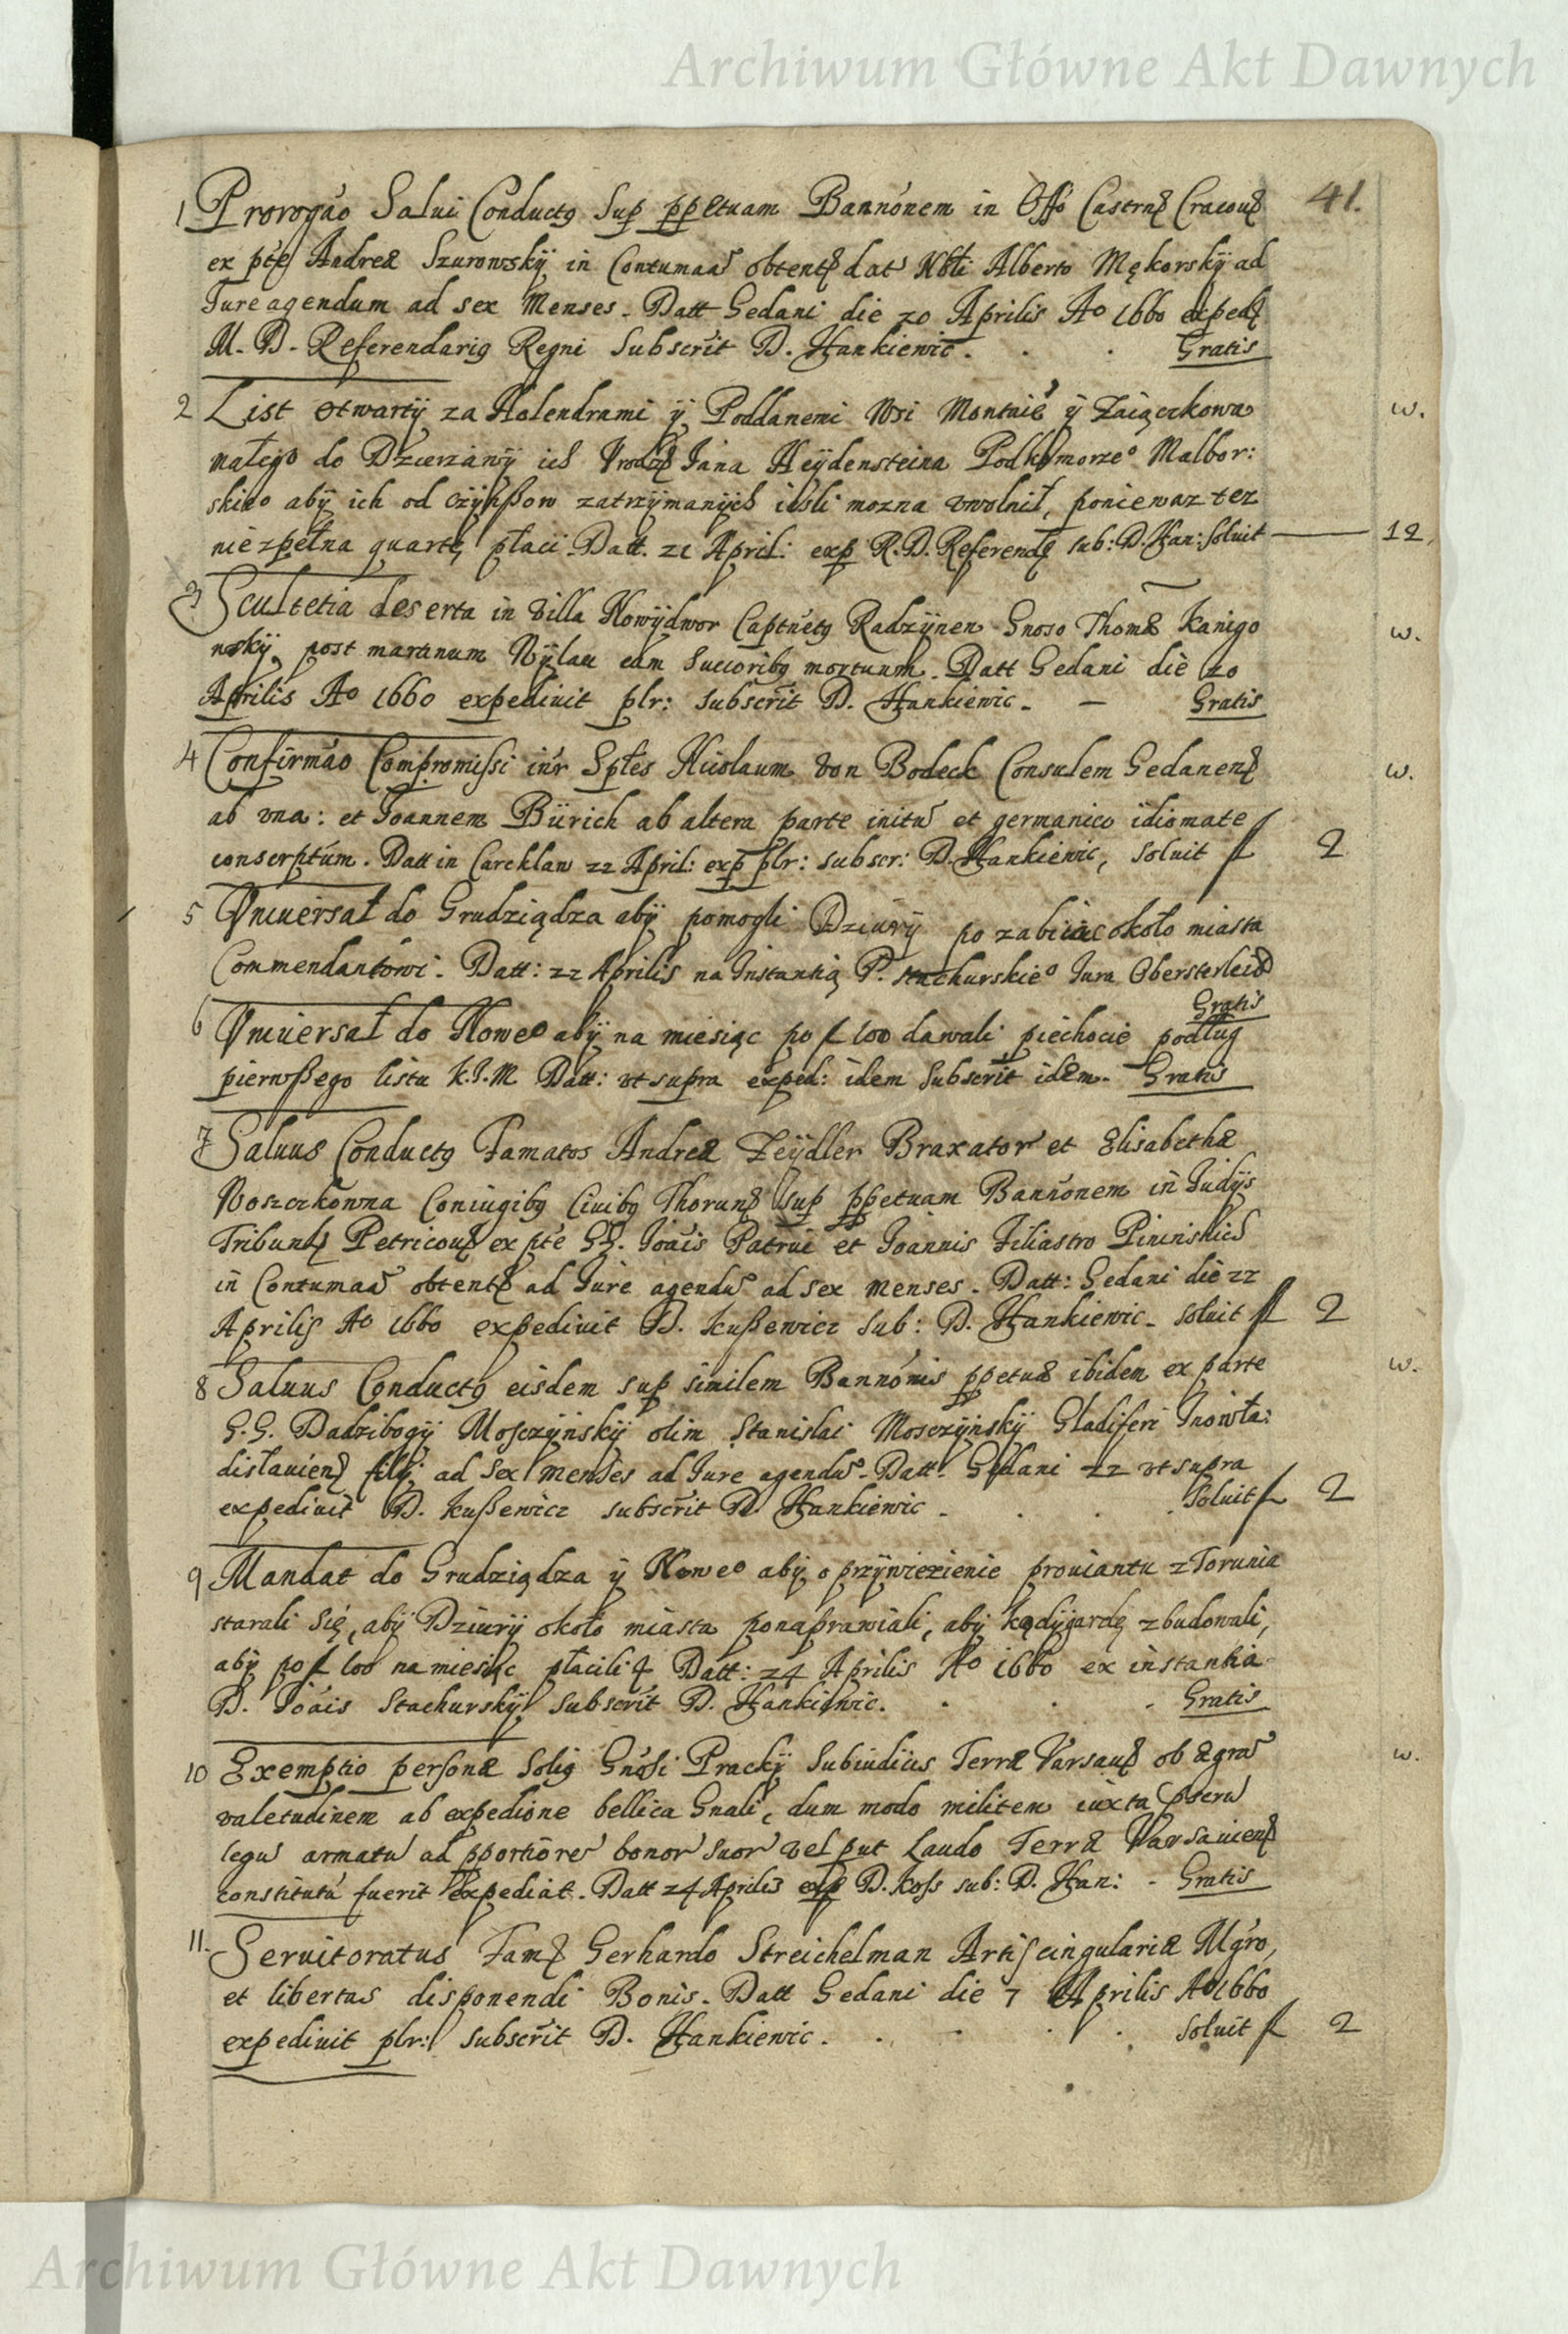 Archiwum Główne Akt Dawnych
41.
1 Prorogáo Salui Conductꝯ Sup ppetuam Bannónem in Offo Castrn Cracou
ex pte Andreæ Szurowskÿ in Contumaa obtent dat Nbli Alberto Mękorskÿ ad
Iure agendum ad sex Menses. Datt Gedani die 20 Aprilis Aº 1660 exped
M. D. Referendariꝯ Regni Subscrit D. Hankiewic. Gratis
2 List otwartÿ za Holendrami ÿ Poddanemi Wsi Montaie ÿ Zaiączkowa w.
małego do Dzierzawÿ ich Vrodz Jana Heÿdensteina Podkomorzeº Malbor:
skieo abÿ ich od czÿnßow zatrzÿmanÿch iesli mozna vwolnił, poniewaz tez
niezpełna quartę płaci. Datt. 21 April: exp R. D. Referend sub: D. Han: Soluit — 12.
3 Scultetia deserta in Villa Nowÿdwor Captuetꝯ Radzÿnen Gnoso Thomæ Kanigo w.
wskÿ, post martinum Wÿlau eam Succoribꝯ mortuum. Datt Gedani die 20
Aprilis Aº 1660 expediuit plr: Subscrit D. Hankiewic. — Gratis
4 Confirmáo Compromissi int'r Sptes Nicolaum von Bodeck Consulem Gedanen w.
ab vna: et Joannem Bürich ab altera parte initu et germanico idiomate
conscrptum. Datt in Carcklaw 22 April: exp plr: subscr: D. Hankiewic, Soluit fl 2
5 Vniuersał do Grudziądza abÿ pomogli Dziurÿ po zabiiac około miasta
Commendantowi. Datt: 22 Aprilis na Instantią P. Stachurskieº Jura Obersterleid
Gratis
6 Vniuersał do Noweo abÿ na miesiąc po fl 100 dawali piechocie podług
pierwßego listu K.J.M. Datt: vt supra exped: idem Subscrit idem. Gratis
7 Saluus Conductꝯ Famatos Andreæ Zeÿdler Braxator et Elisabethæ
Woszczkowna Coniugibꝯ Ciuibꝯ Thorun sup ppetuam Bannonem in Judÿs
Tribunl Petricou ex pte GG. Joáis Patrui et Joannis Filiastro Pininskich
in Contumaa obtent ad Jure agendu ad sex menses. Datt: Gedani die 22
Aprilis Aº 1660 expediuit D. Kußewicz Sub: D. Hankiewic. Soluit fl 2
8 Saluus Conductꝯ eisdem sup similem Bannónis ppetuæ ibidem ex parte w.
G.G. Dadzibogÿ Moszczÿnskÿ olim Stanislai Mosczÿnskÿ Gladiferi Inowła:
disłauien filÿ ad Sex menses ad Jure agendu. Datt. Gedani 22 vt supra
expediuit D. Kußewicz subscrit D. Hankiewic. Soluit fl 2
9 Mandat do Grudziądza ÿ Noweº abÿ o przÿwiezienie prouiantu z Torunia
starali Się, abÿ Dziurÿ około miasta ponaprawiali, abÿ kądÿgardę zbudowali,
abÿ po fl 100 na miesiąc płacili Datt: 24 Aprilis Aº 1660 ex instantia
D. Joáis Stachurskÿ Subscrit D. Hankiewic. Gratis
10 Exemptio personæ Soliꝯ Gnosi Prackÿ Subiudicis Terræ Varsau ob ægra w.
valetudinem ab expedione bellica Gnali, dum modo militem iuxta pscru
legu armatu ad pportiore bonor suor vel put Laudo Terræ Varsauien
constitutu fuerit expediat. Datt 24 Aprilis exp D. Koss sub: D. Han: Gratis
11. Seruitoratus Fam Gerhardo Streichelman Artis cingulariæ Mgro,
et libertas disponendi Bonis. Datt Gedani die 7 Aprilis Aº 1660
expediuit plr: subscrit D. Hankiewic. Soluit fl 2
Archiwum Główne Akt Dawnych